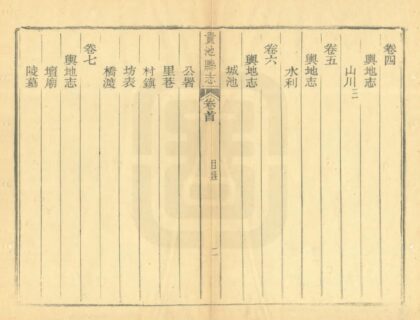 卷四
輿地志
山川二
卷五
輿地志
水利
卷六
輿地志
城池
貴池縣志
卷首
目錄
二
公署
里巷
村鎮
坊表
橋渡
卷七
輿地志
壇廟
陵墓